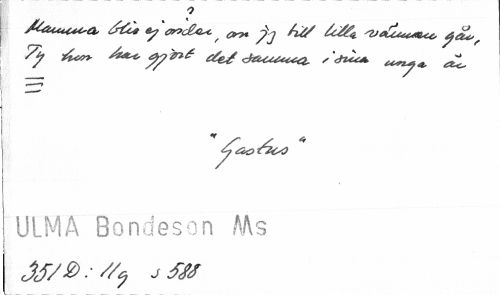 ?
Mamma blir ej önder, om jg till lilla vännen går,
Ty hon har gjort det samma i sina unga år
"Gastus"
ULMA Bondeson Ms
351 D: 11g s 588